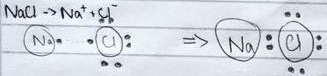 NaCl -> Na⁺ + Cl⁻
Na Cl => Na Cl